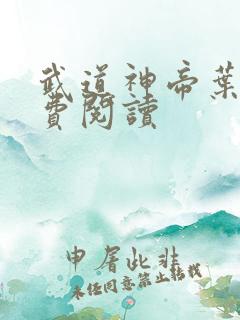 武道神帝葉
費閱讀
申屠此非
未經同意禁止轉載